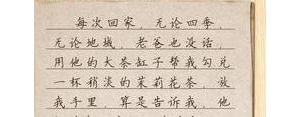 每次回家，无论四季，
无论地域，老爸也没话，
用他的大茶缸子帮我勾兑
一杯稍淡的茉莉花茶，放
我手里，算是告诉我，他